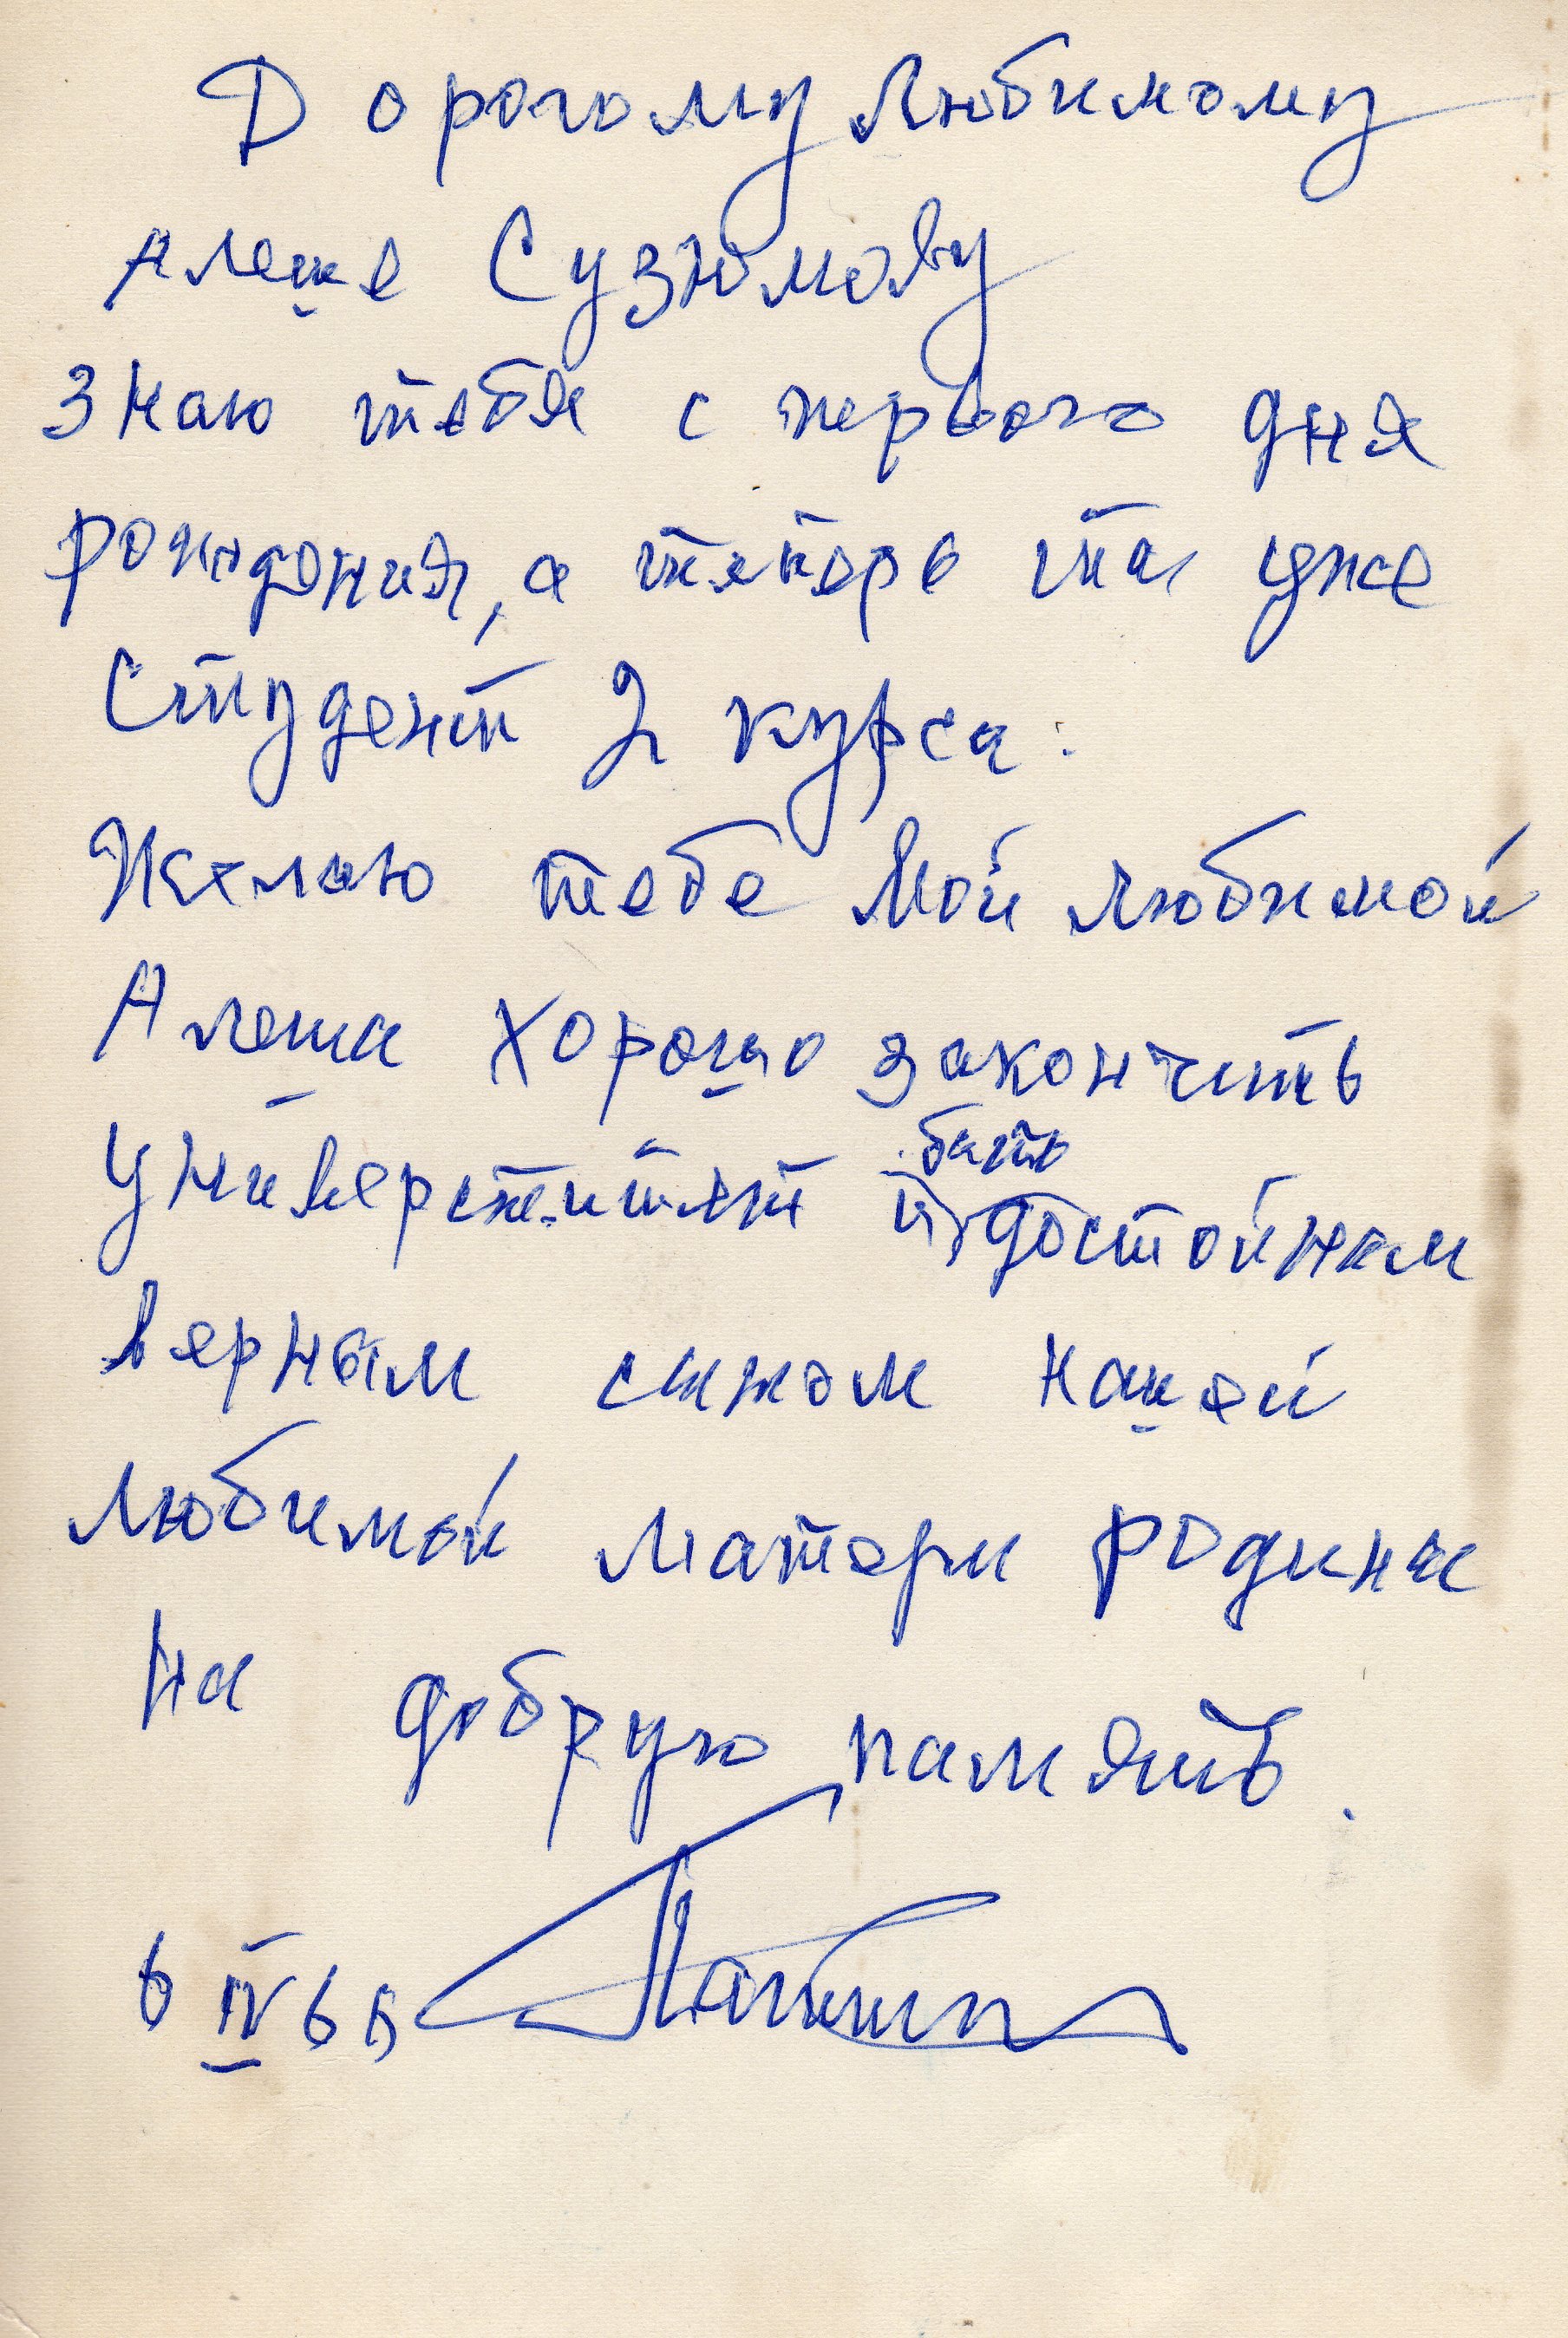 Дорогому любимому
Алеше Сузюмову
Знаю тебя с первого дня
рождения, а теперь ты уже
студент 2 курса.
Желаю тебе мой любимой
Алеша хорошо закончить
университет и быть достойным
верным сыном нашей
любимой матери родины
На добрую память.
6 IV 6